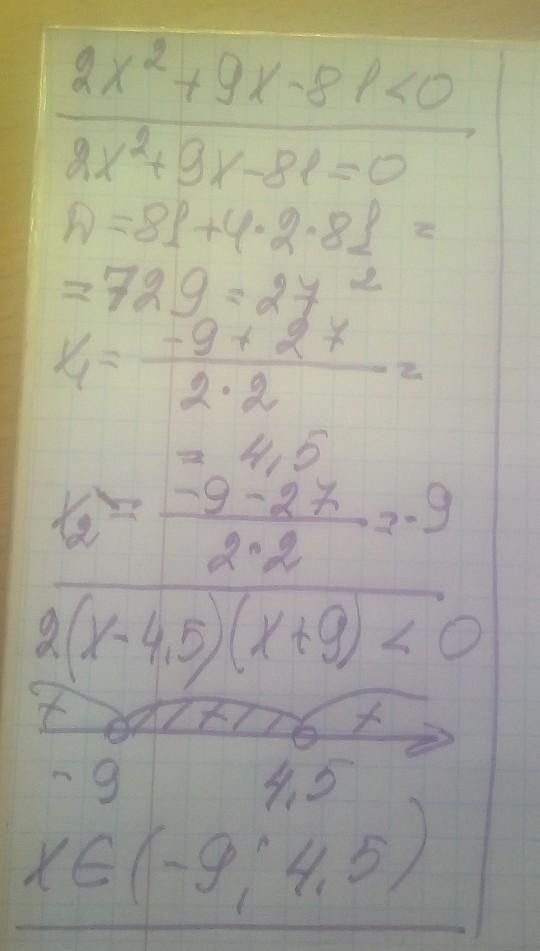 2x²+9x-81<0
2x²+9x-81=0
D=81+4·2·81 =
=729=27²
x₁= (-9+27)/(2·2) =
= 4,5
x₂= (-9-27)/(2·2) =-9
2(x-4,5)(x+9)<0
+ - +
-9 4,5
x∈(-9; 4,5)